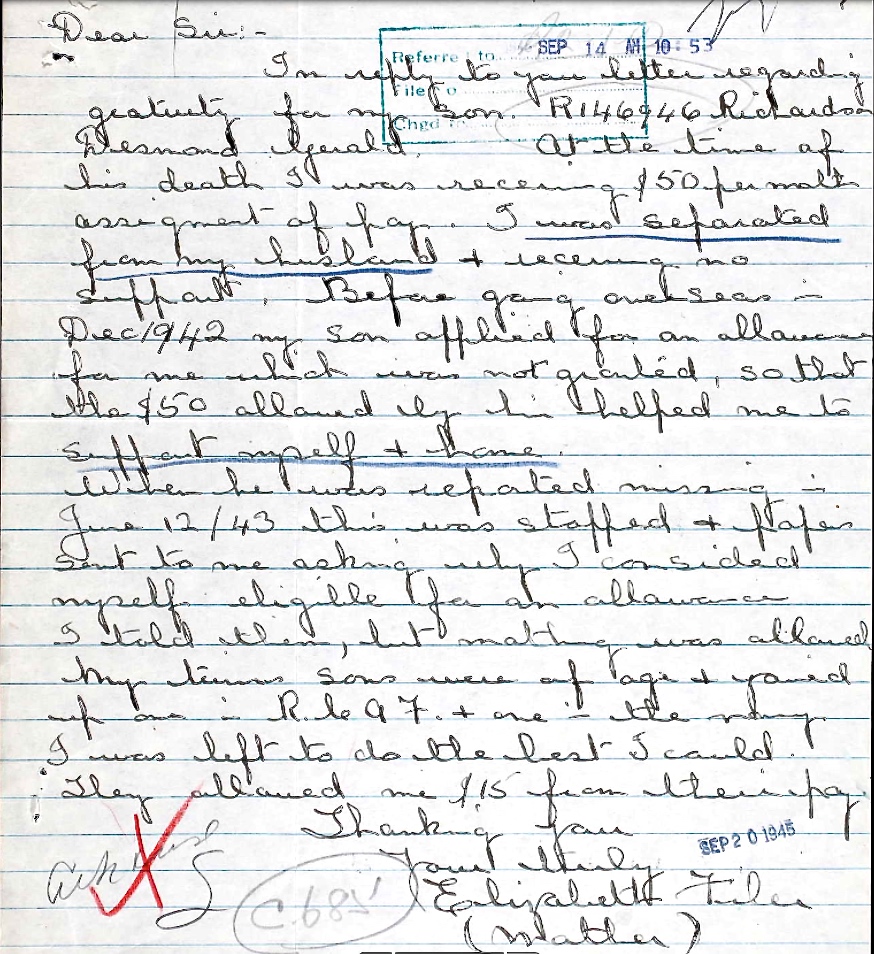 Dear Sir:-
Referred to SEP 14 AM 10:53
In reply to you letter regarding
File No
gratuity for my son. R146946 Richardson
Chgd to
Desmond Gerald. At the time of
his death I was receiving $50 per month
assigment of pay. I was separated
from my husband + receiving no
support. Before going overseas in
Dec 1942 my son applied for an allowance
for me which was not granted, so that
the $50 allowed by him helped me to
support myself + home.
When he was reported missing in
June 12/43 this was stopped + papers
sent to me asking why I considered
myself eligible for an allowance
I told them, but nothing was allowed
My twins sons were of age + joined
up one in R.C.A.F. + one in the navy.
I was left to do the best I could.
They allowed me $15 from their pay.
Thanking you
SEP 20 1945
Yours truly
C.685
Elizabeth
(Mother)